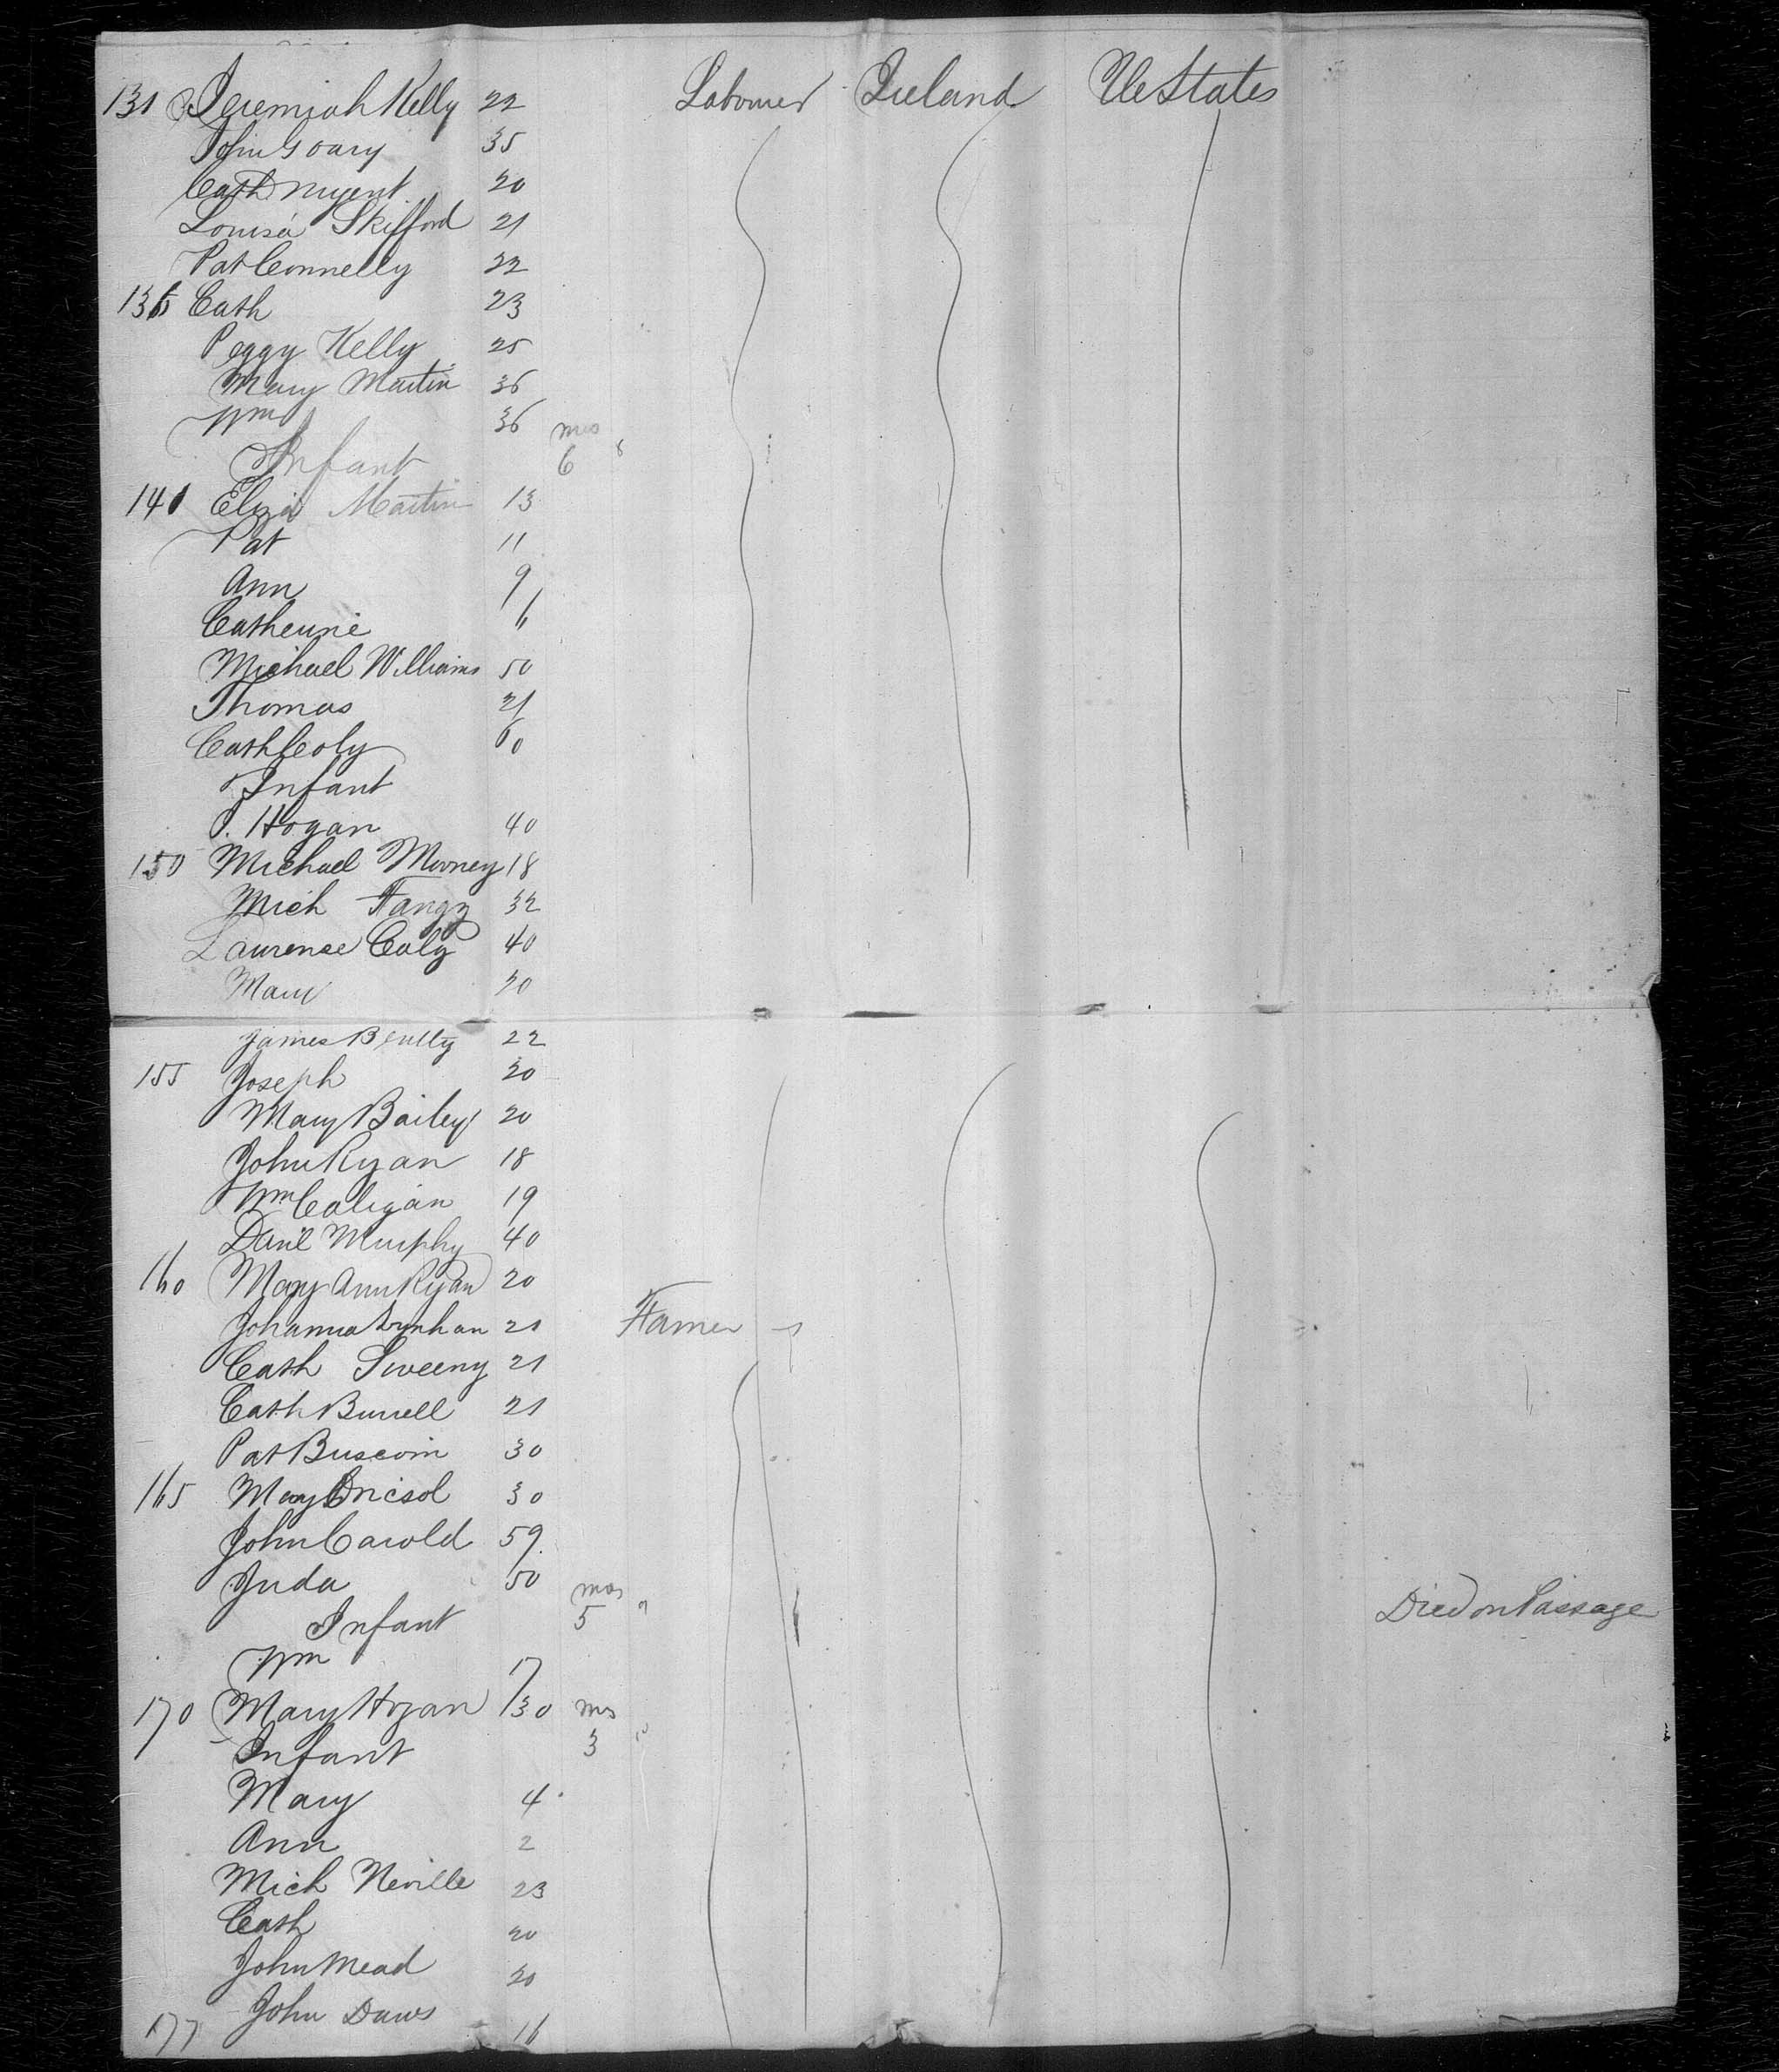 131 Jeremiah Kelly 22 Labourer Ireland Ue States
John Goary 35
Cath Nugent 20
Louisa Skifford 21
Pat Connelly 22
136 Cath 23
Peggy Kelly 25
Mary Martin 36
Wm 36 mos
Infant 6
141 Eliza Martin 13
Pat 11
Ann 9
Catherine 6
Michael Williams 50
Thomas 21
Cath Coly 60
Infant
P. Hogan 40
150 Michael Mooney 18
Mich 32
Laurence Coly 40
Mary 20
James 22
155 Joseph 20
Mary Bailey 20
John Ryan 18
Wm Caligan 19
Danl Murphy 40
160 Mary Ann Ryan 20
Johanna 21 Farmer
Cath Sweeny 21
Cath Burrell 21
Pat 30
165 Mary 30
John Carold 59
Juda 50 mos
Infant 5 Died on Passage
Wm 17
170 Mary Hogan 30 mos
Infant 3
Mary 4
Ann 2
Mich Neville 23
Cath 20
John Mead 20
177 John Daws 16